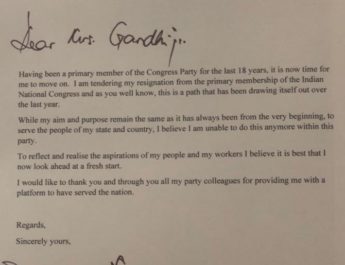 Dear Mrs. Gandhiji,
Having been a primary member of the Congress Party for the last 18 years, it is now time for
me to move on. I am tendering my resignation from the primary membership of the Indian
National Congress and as you well know, this is a path that has been drawing itself out over
the last year.
While my aim and purpose remain the same as it has always been from the very beginning, to
serve the people of my state and country, I believe I am unable to do this anymore within this
party.
To reflect and realise the aspirations of my people and my workers I believe it is best that I
now look ahead at a fresh start.
I would like to thank you and through you all my party colleagues for providing me with a
platform to have served the nation.
Regards,
Sincerely yours,